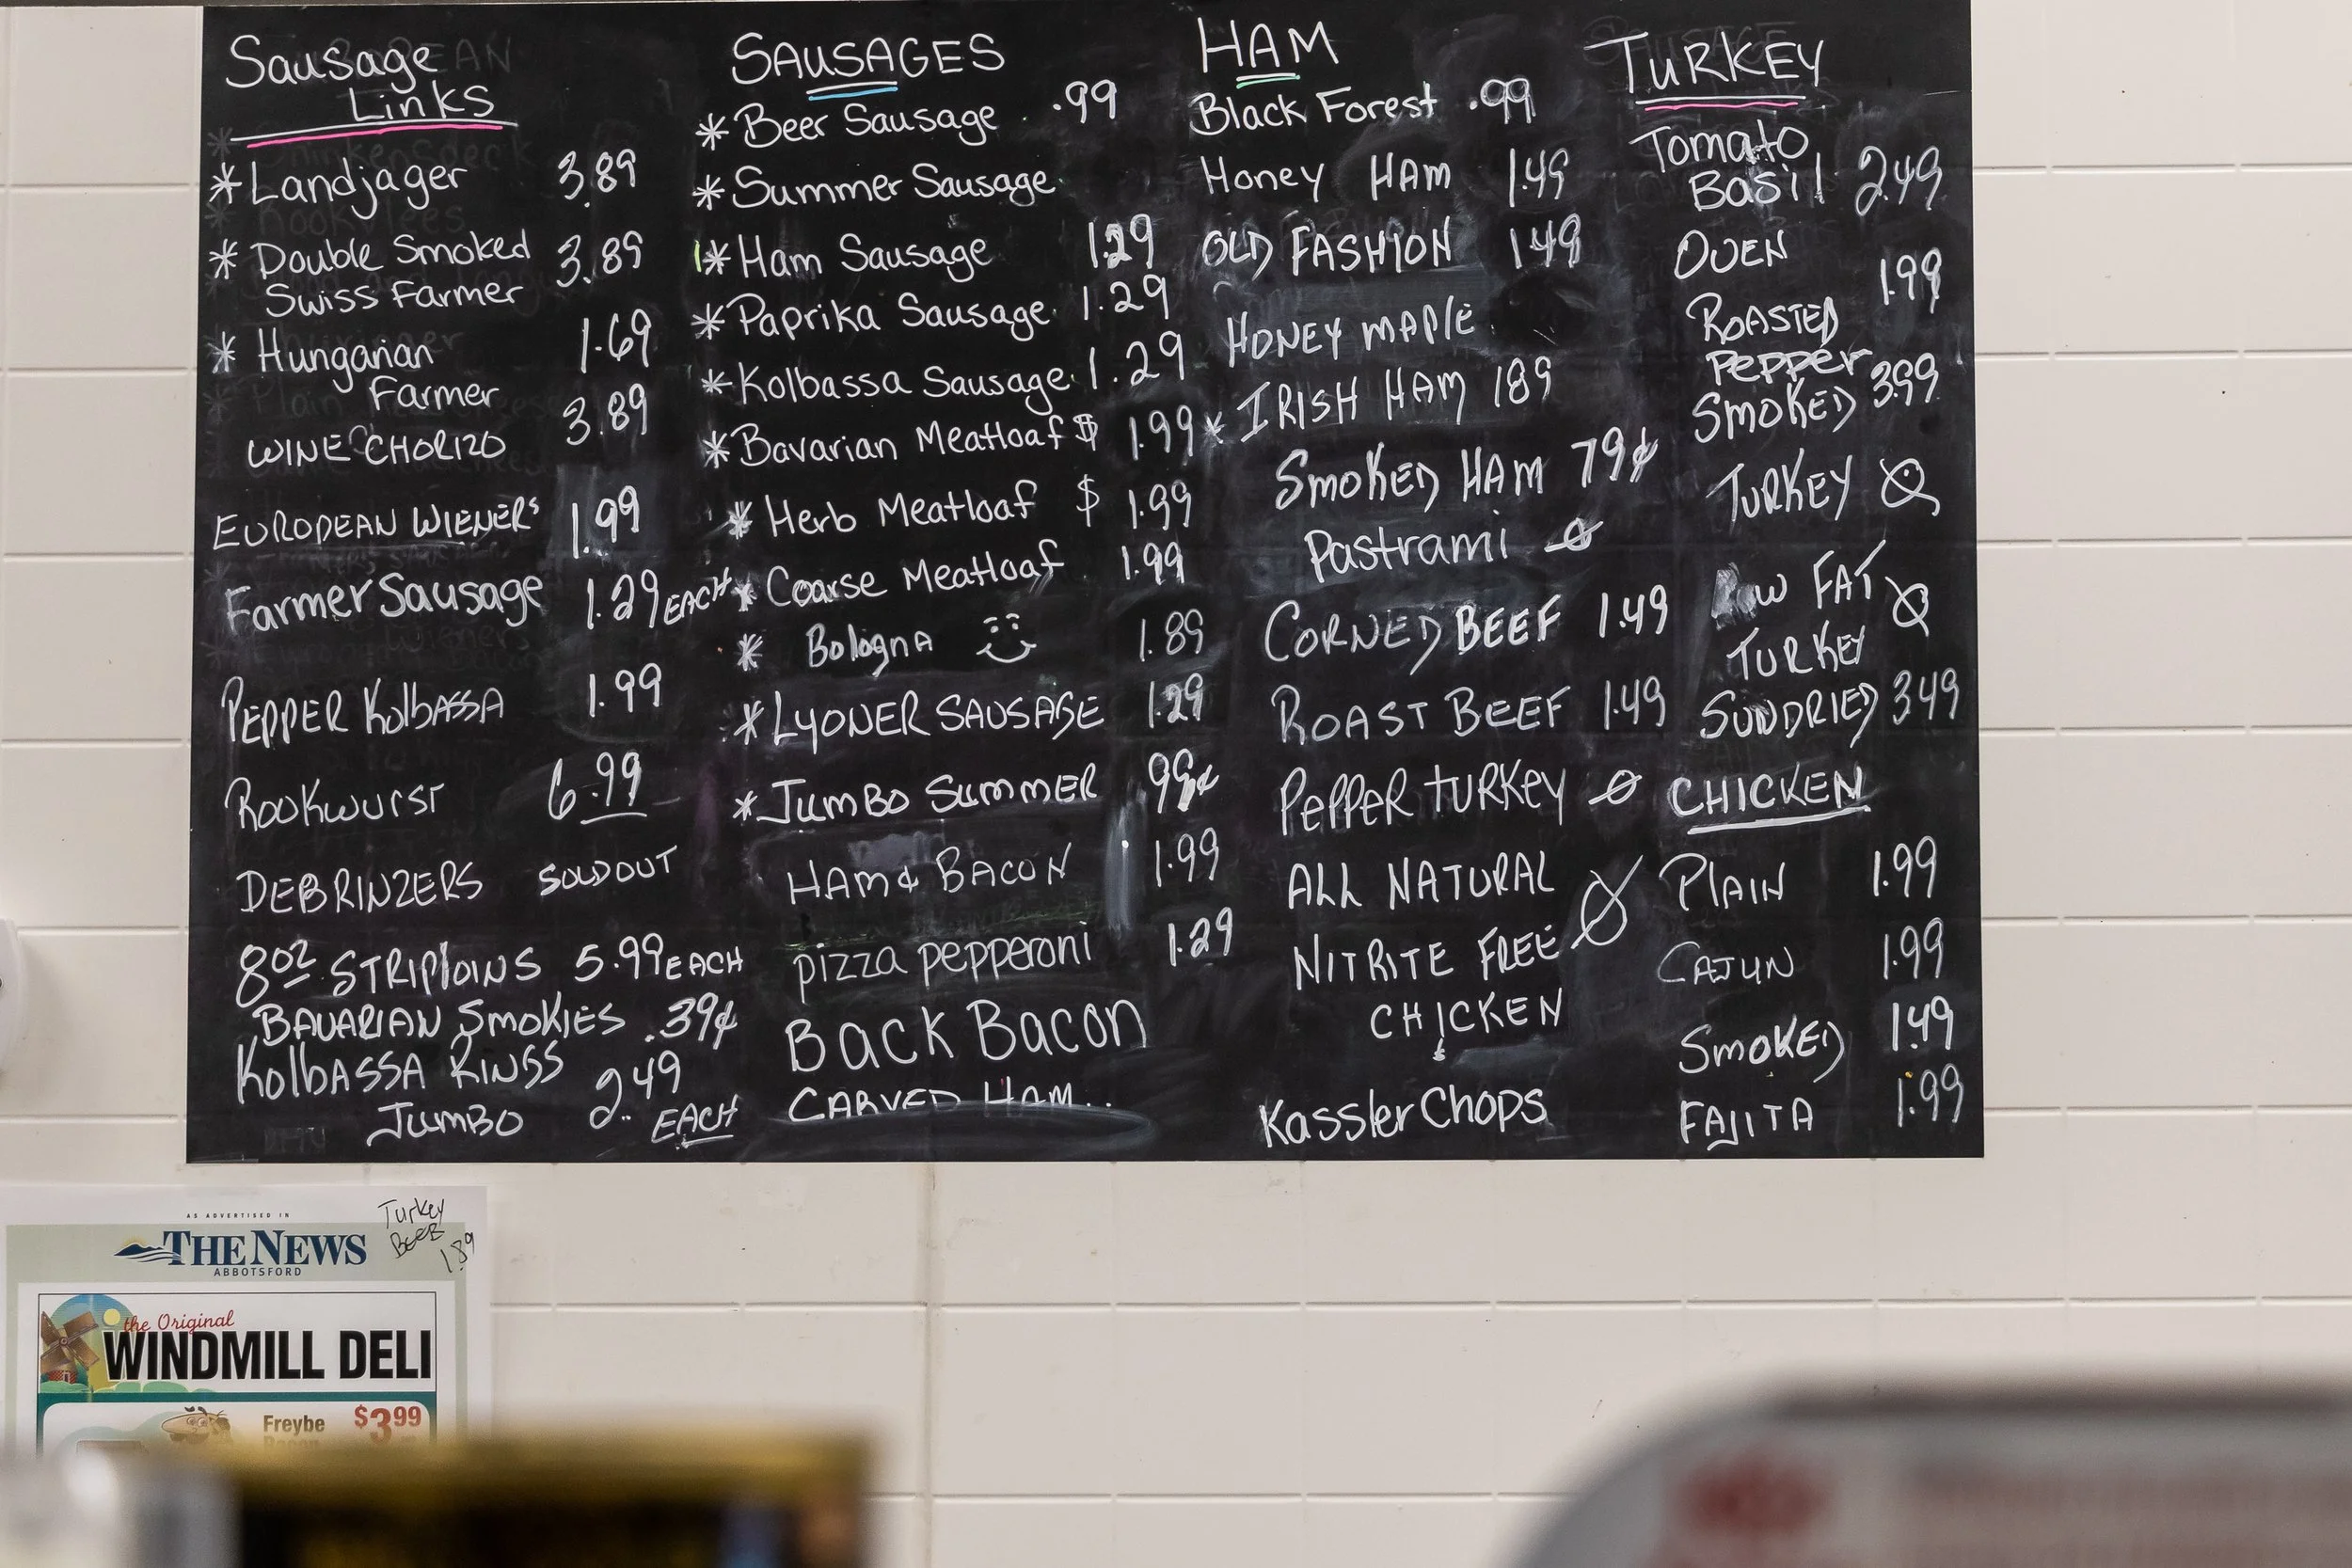 Sausage
Links
* Landjager 3.89
* Double Smoked 3.89
Swiss Farmer
* Hungarian 1.69
Farmer
WINE CHORIZO 3.89
EUROPEAN WIENERS 1.99
Farmer Sausage 1.29 EACH
PEPPER KolbASSA 1.99
ROOKWURST 6.99
DEBRINZERS SOLD OUT
8oz STRIPlOINS 5.99 EACH
BAVARIAN SMOKIES .39¢
KolbASSA RINGS 2.49
JUMBO EACH
SAUSAGES
* Beer Sausage .99
* Summer Sausage
* Ham Sausage 1.29
* Paprika Sausage 1.29
* Kolbassa Sausage 1.29
* Bavarian Meatloaf $ 1.99
* Herb Meatloaf $ 1.99
* Coarse Meatloaf 1.99
* Bologna 1.89
* LYONER SAUSAGE 1.29
* JUMBO SUMMER 99¢
HAM & BACON 1.99
pizza pepperoni 1.29
Back Bacon
CARVED HAM..
HAM
Black Forest .99
Honey HAM 1.49
OLD FASHION 149
HONEY MAPlE
* IRISH HAM 189
SMOKED HAM 79¢
Pastrami Ø
CORNED BEEF 1.49
ROAST BEEF 1.49
PEPPER TURKEY Ø
ALL NATURAL
NITRITE FREE Ø
CHICKEN
Kassler Chops
TURKEY
Tomato
Basil 2.49
OVEN
ROASTED 1.99
PEPPER
SMOKED 399
TURKEY Ø
LOW FAT Ø
TURKEY
SUNDRIED 349
CHICKEN
PLAIN 1.99
CAJUN 1.99
SMOKED 1.49
FAJITA 1.99
AS ADVERTISED IN
THE NEWS
ABBOTSFORD
Turkey
1.89
the Original
WINDMILL DELI
Freybe $3.99